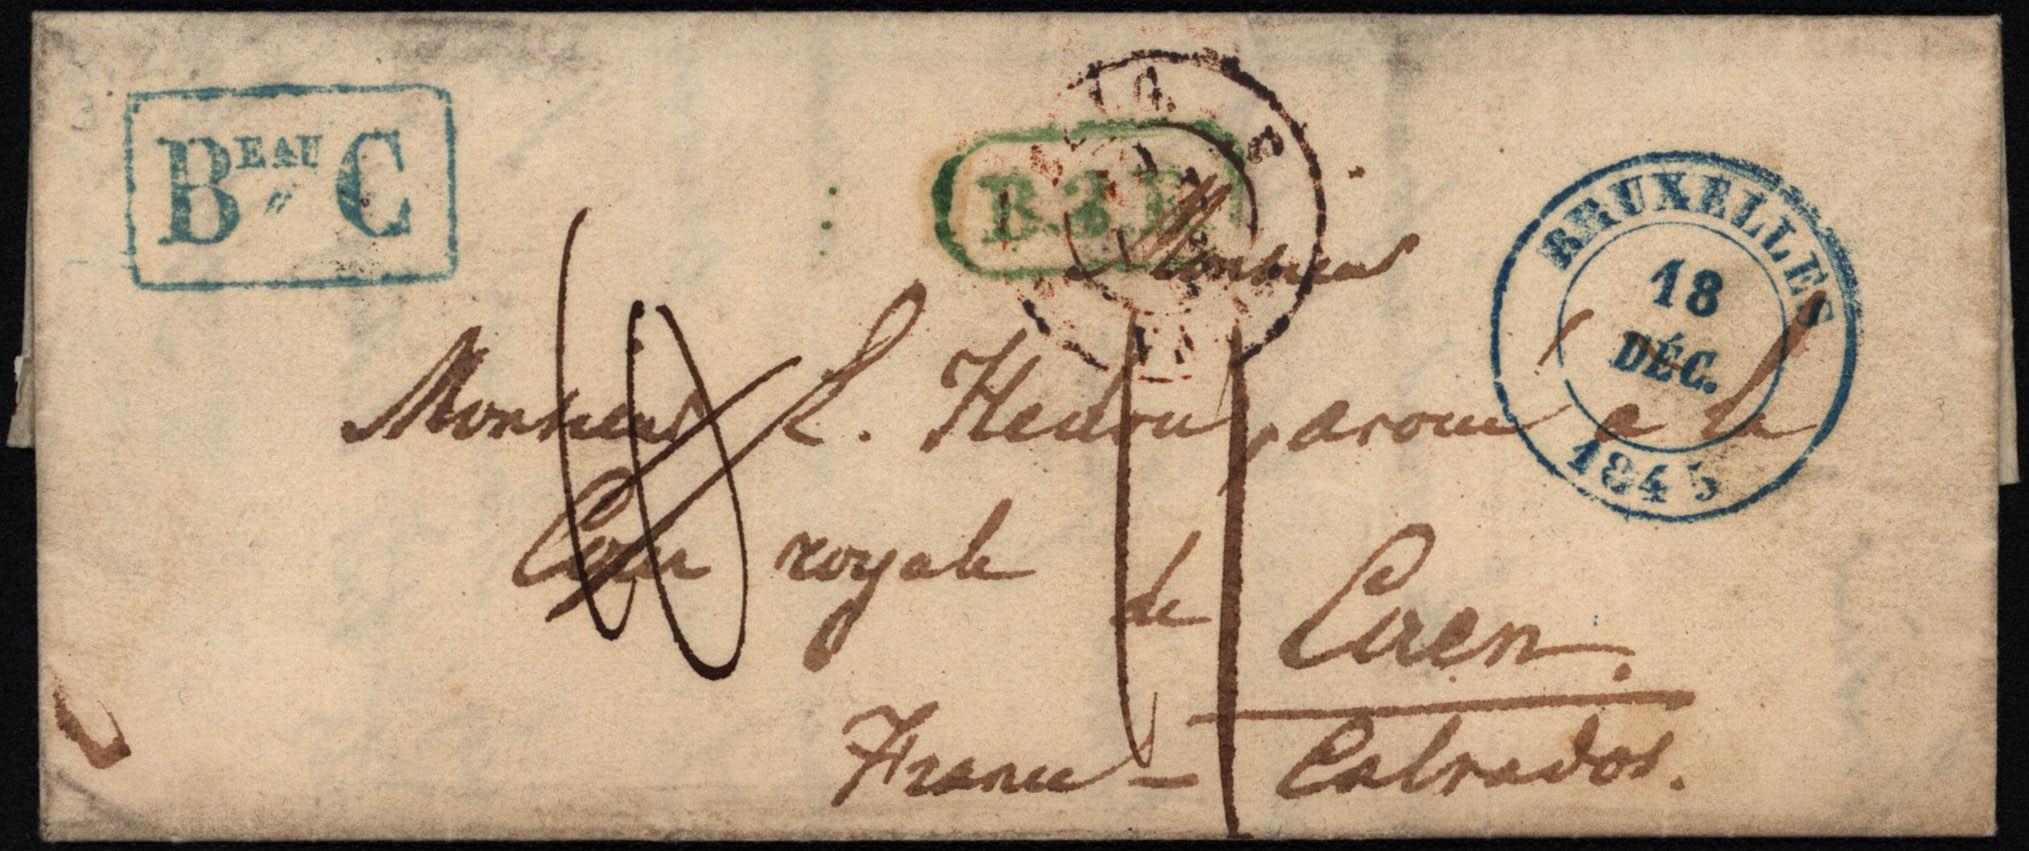 BEAU " C
B.3.R
BRUXELLES
18
DÉC.
1845
Monsieur
Monsieur L. Hedou, avoué a la
Cour royale de Caen.
France - Calvados.